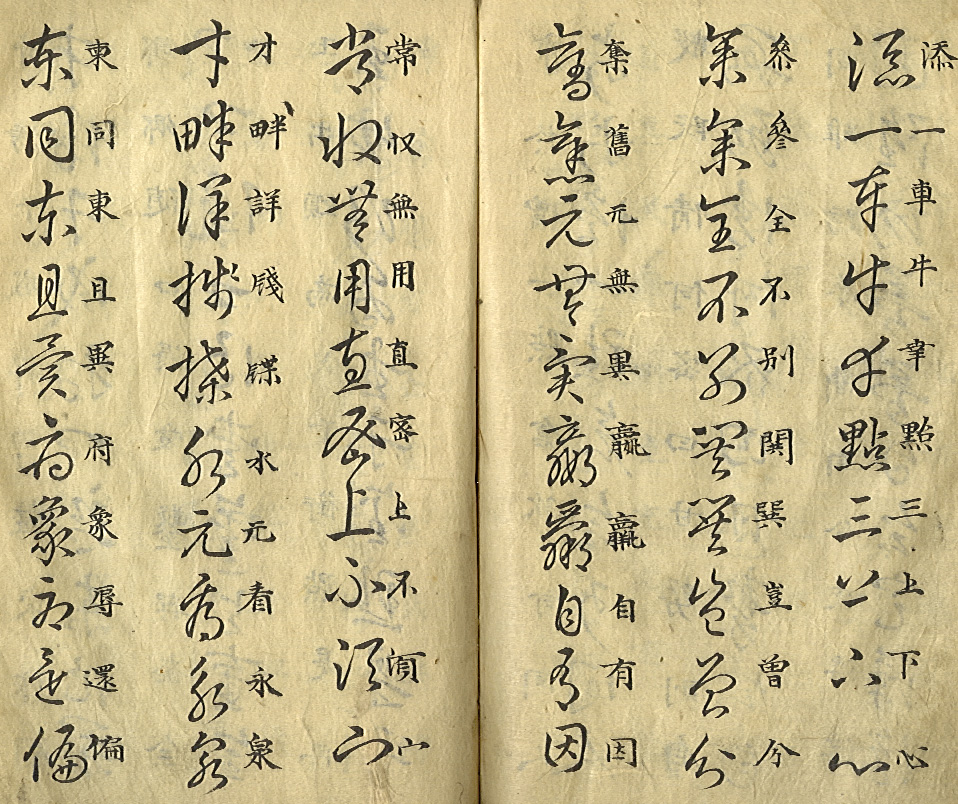 添一車牛幸點三上下心
叅參全不别関巽豈曽今
奪舊元無異贏羸自有因
常収無用直密上不湏宀
才畔詳牋牒水元看永泉
柬同東且異府象辱還偏